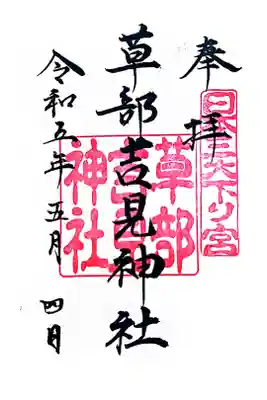 奉拝
日本三大下り宮
草部吉見神社
草部吉見神社
令和五年五月四日